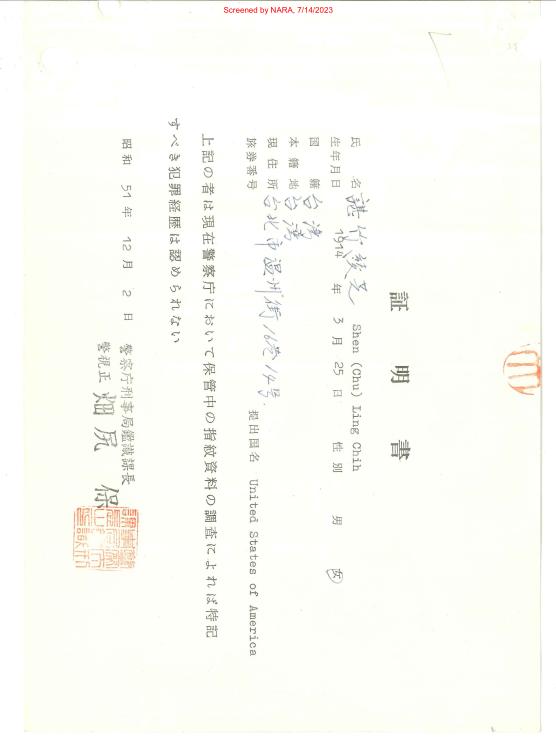 Screened by NARA, 7/14/2023
証明書
氏名 諶竹綾之 Shen (Chu) Ling Chih
生年月日 1914年 3月 25日 性別 男 女
国籍 台湾
本籍地 台湾
現住所 台北市温州街16巷14号
旅券番号 提出国名 United States of America
上記の者は現在警察庁において保管中の指紋資料の調査によれば特記
すべき犯罪経歴は認められない
昭和 51年 12月 2日
警察庁刑事局鑑識課長
警視正 畑尻 保